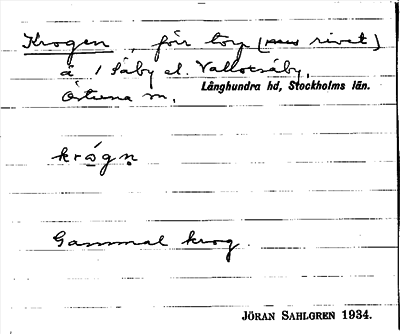 Krogen, förr torp (nu rivet)
å 1 Såby el. Vallbesåby,
Östuna sn.
Långhundra hd, Stockholms län.
krågn
Gammal krog.
JÖRAN SAHLGREN 1934.